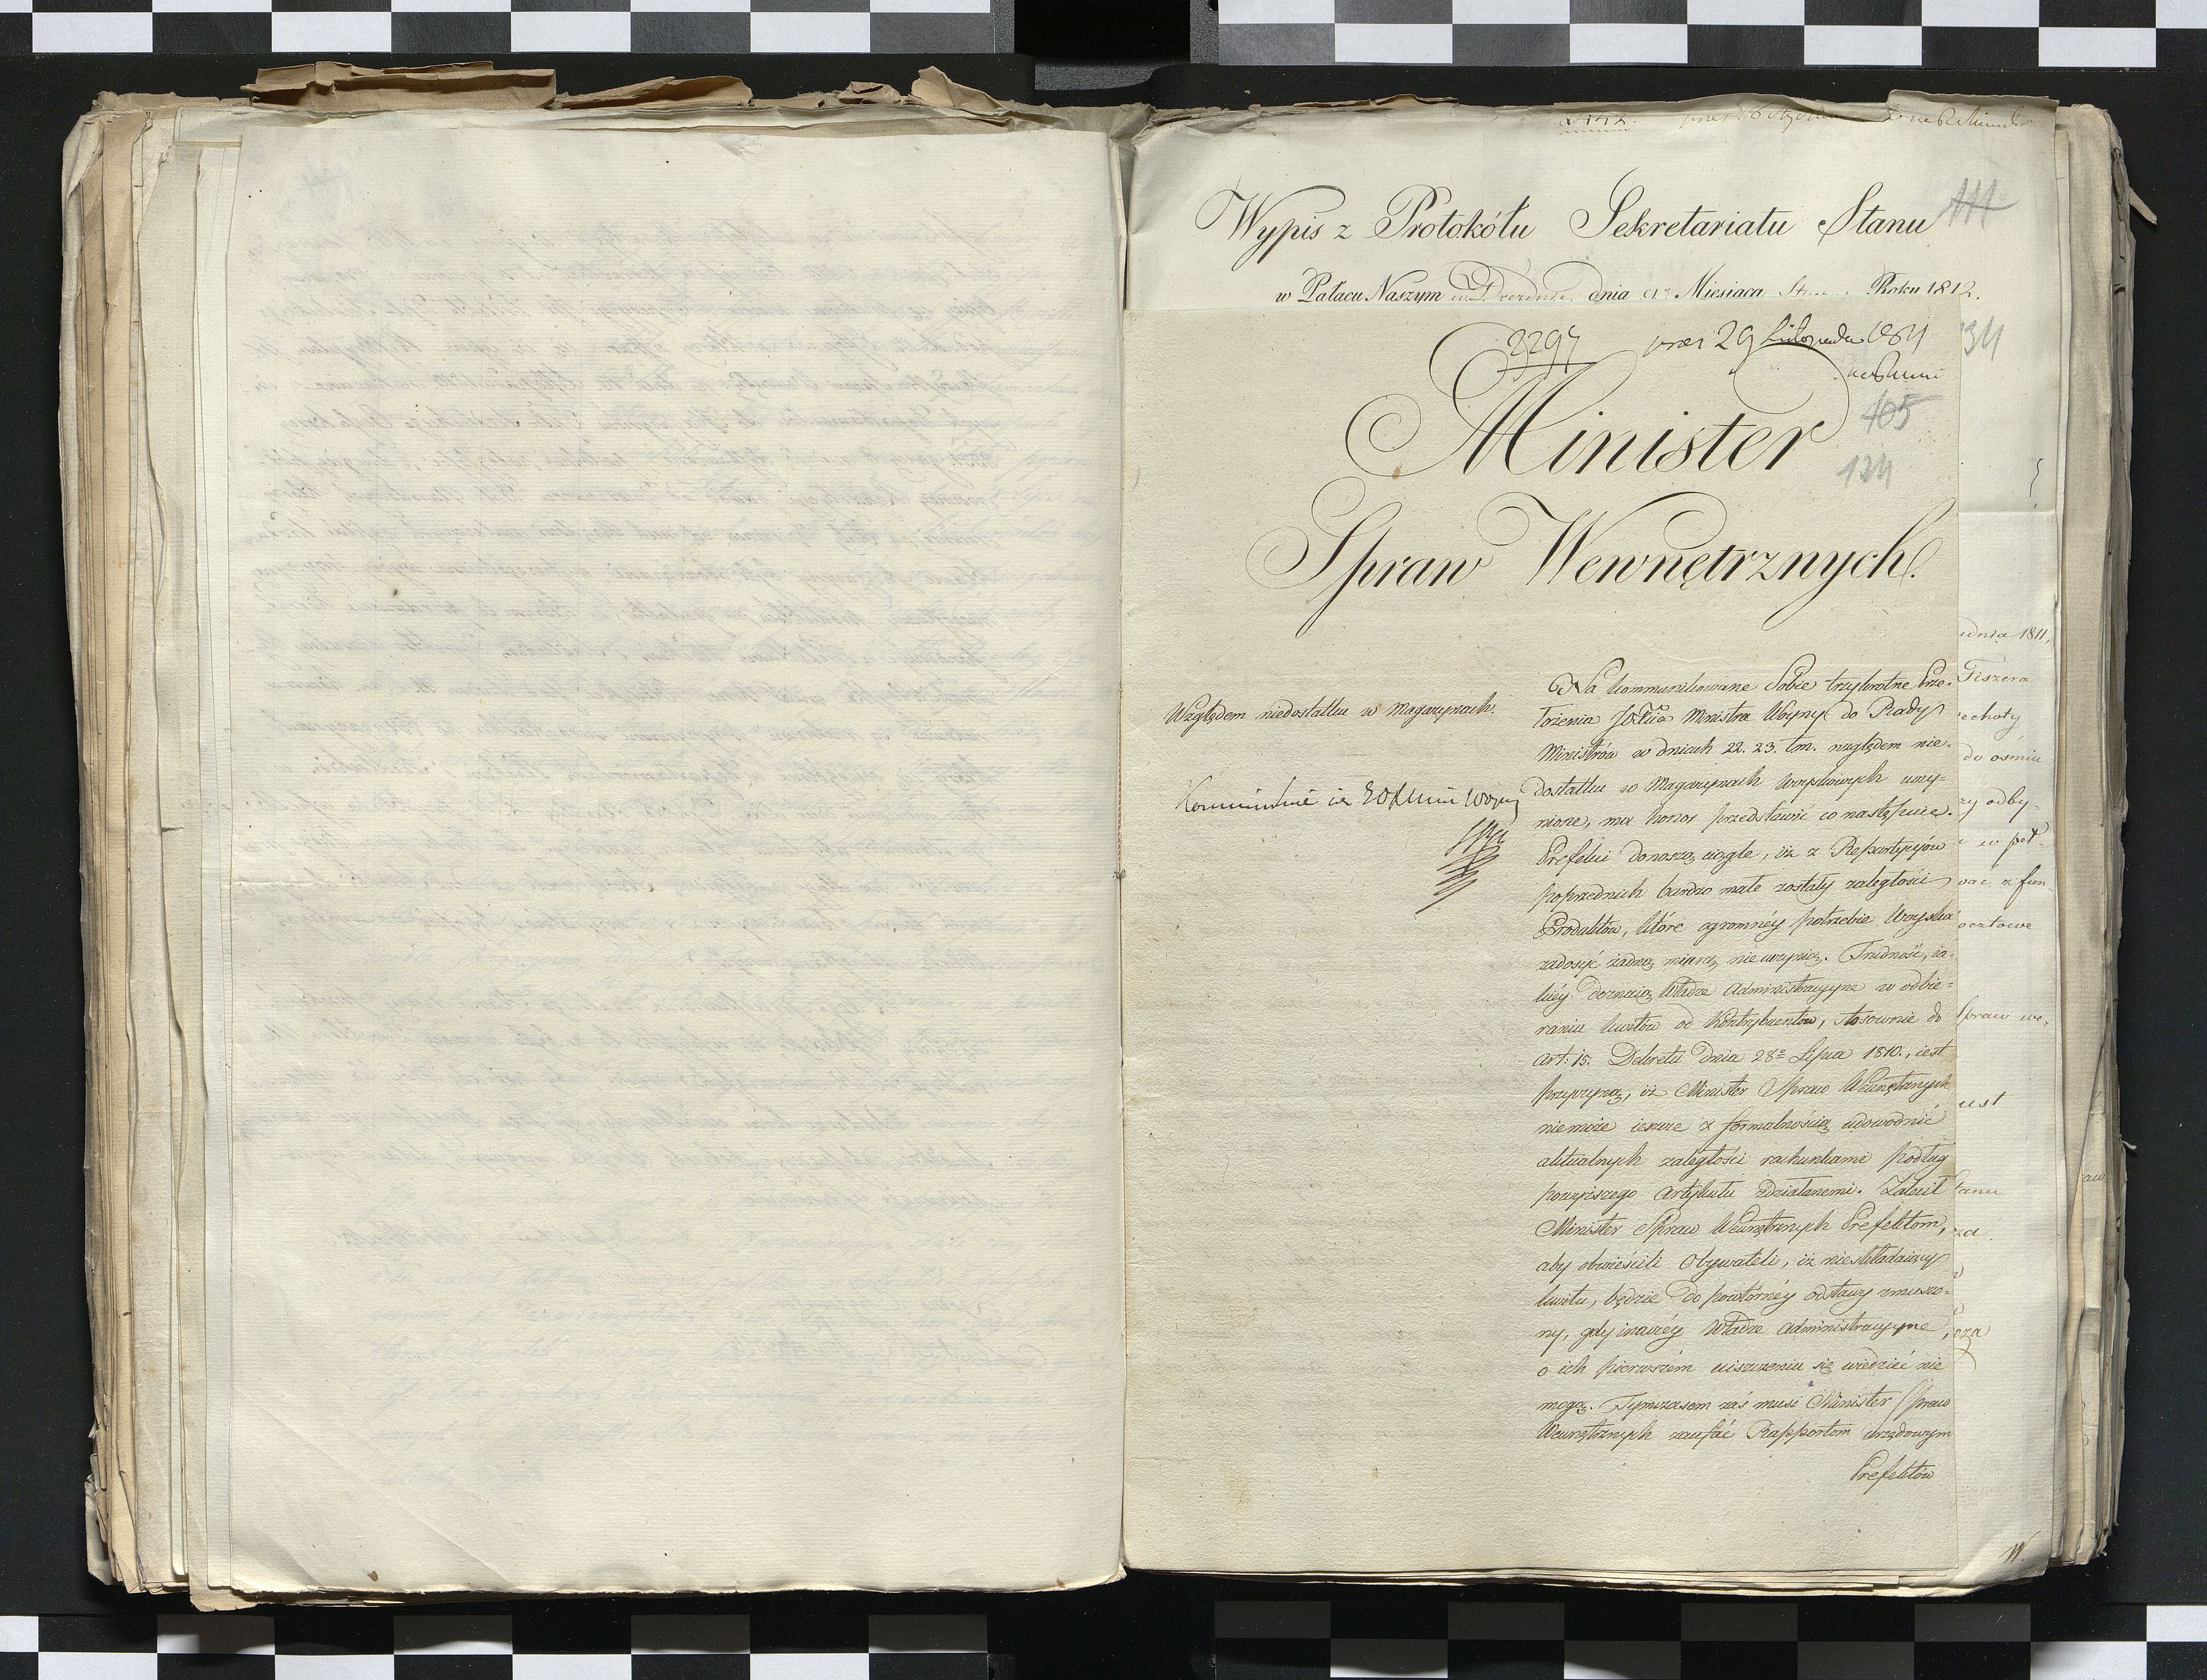 Wypis z Protokółu Sekretariatu Stanu
w Pałacu Naszym w Dreźnie dnia Miesiąca Roku 1812.
2297 29 Listopada 1811
Minister
105
134
Spraw Wewnętrznych.
Względem niedostatku w Magazynach.
Na kommunikowane Sobie trzykrotne Prze-
łożenia Ministra Woyny do Rady
Ministrów w dniach 22. 23. tm. względem nie-
dostatku w Magazynach Woyskowych uczy-
nione, ma honor przedstawić co następuie.
Prefekci donoszą ciągle, iż z Repartycyiów
poprzednich bardzo małe zostały zaległości
Produktów, które ogromnéy potrzebie Woyska
zadosyć żadną miarą nie uczynią. Trudność, ia-
kiéy doznaią Władze Administracyjne w odbie-
raniu kwitów od Kontrybuentów, stosownie do
Art: 15. Dekretu dnia 28º Lipca 1810., iest
przyczyną, iż Minister Spraw Wewnętrznych
niemoże ieszcze z formalnością udowodnić
aktualnych zaległości rachunkami podług
powyższego Artykułu zdziałanemi. Zalecił
Minister Spraw Wewnętrznych Prefektom,
aby obwieścili Obywateli, iż nieskładaiący
kwitu, będzie do powtórnéy odstawy zmuszo-
ny, gdy inaczéy Władze Administracyjne,
o ich pierwszém uiszczeniu się wiedzieć nie
mogą. Tymczasem zaś musi Minister Spraw
Wewnętrznych zaufać Rapportom urzędowym
Prefektów
34
udnia 1811.
Fiszera
echoty
do ośmiu
zy odby-
ocztowe
Spraw we-